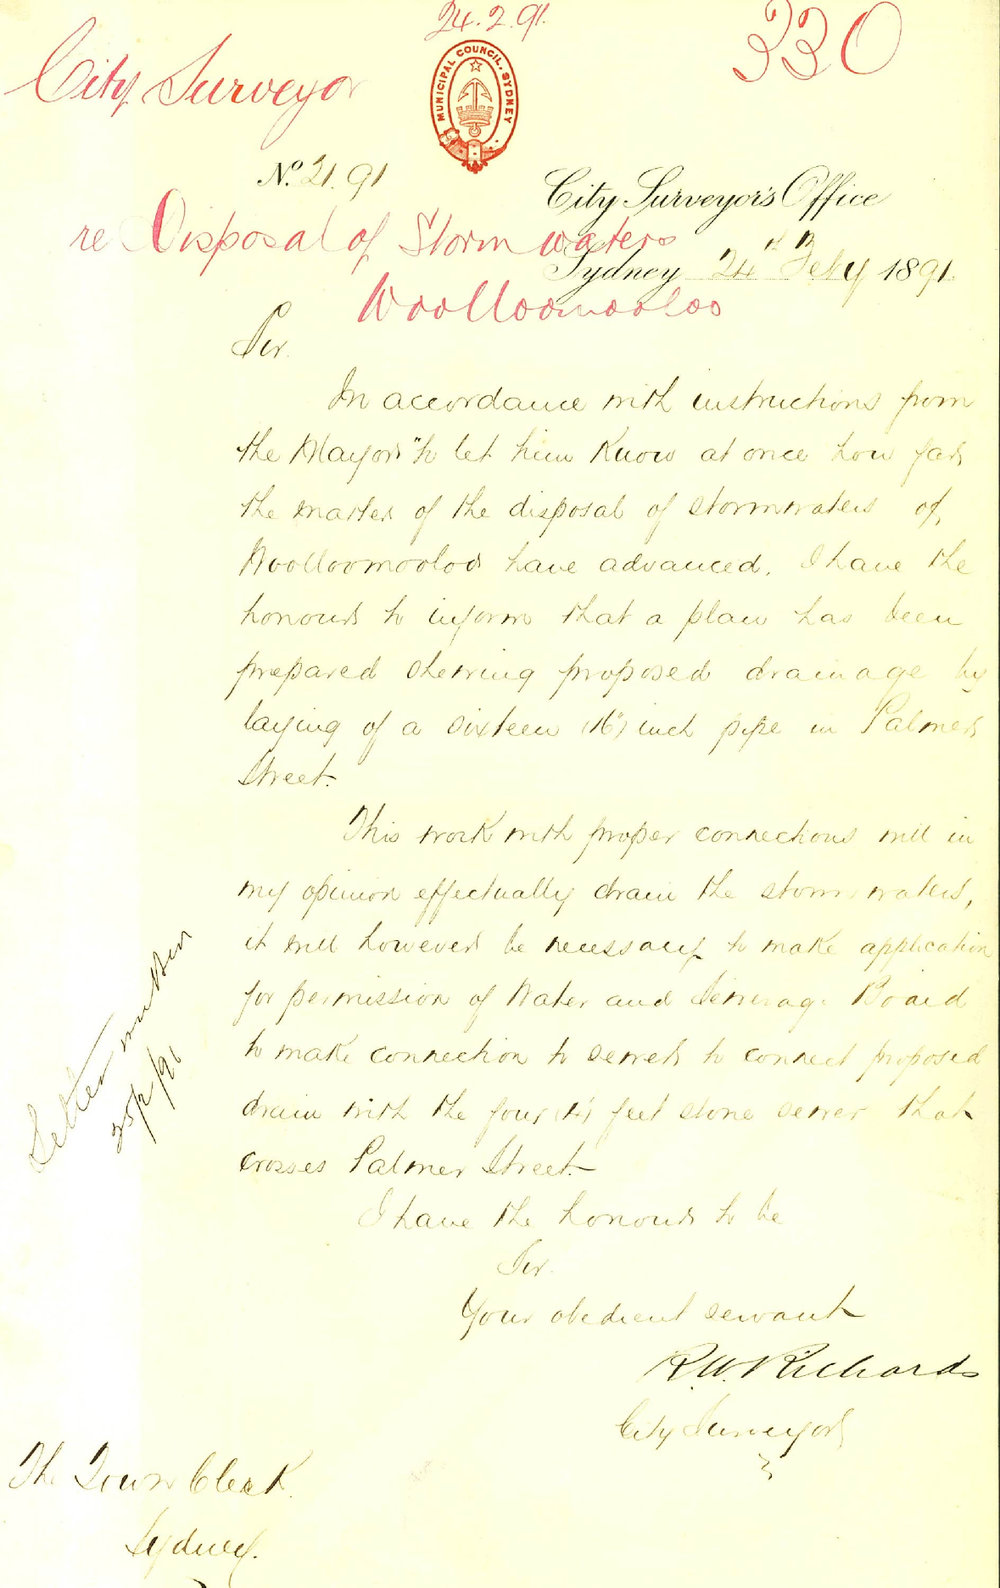 24.2.91.
330
City Surveyor
MUNICIPAL COUNCIL, SYDNEY
No. 21.91
City Surveyor's Office
re Disposal of Storm waters
Sydney 24th Feby 1891.
Woolloomooloo
Sir.
In accordance with instructions from
the Mayor "to let him know at once how far
the matter of the disposal of stormwaters of
Woolloomooloo have advanced. I have the
honour to inform that a plan has been
prepared shewing proposed drainage by
laying of a sixteen (16") inch pipe in Palmer
Street.
This work with proper connections will in
my opinion effectually drain the storm waters,
it will however be necessary to make application
for permission of Water and Sewerage Board
to make connection to sewer to connect proposed
drain with the four (4') feet stone sewer that
crosses Palmer Street.
I have the honour to be
Sir.
Your obedient servant
R.W. Richards
City Surveyor
The Town Clerk.
Sydney.
Letter written
25/2/91